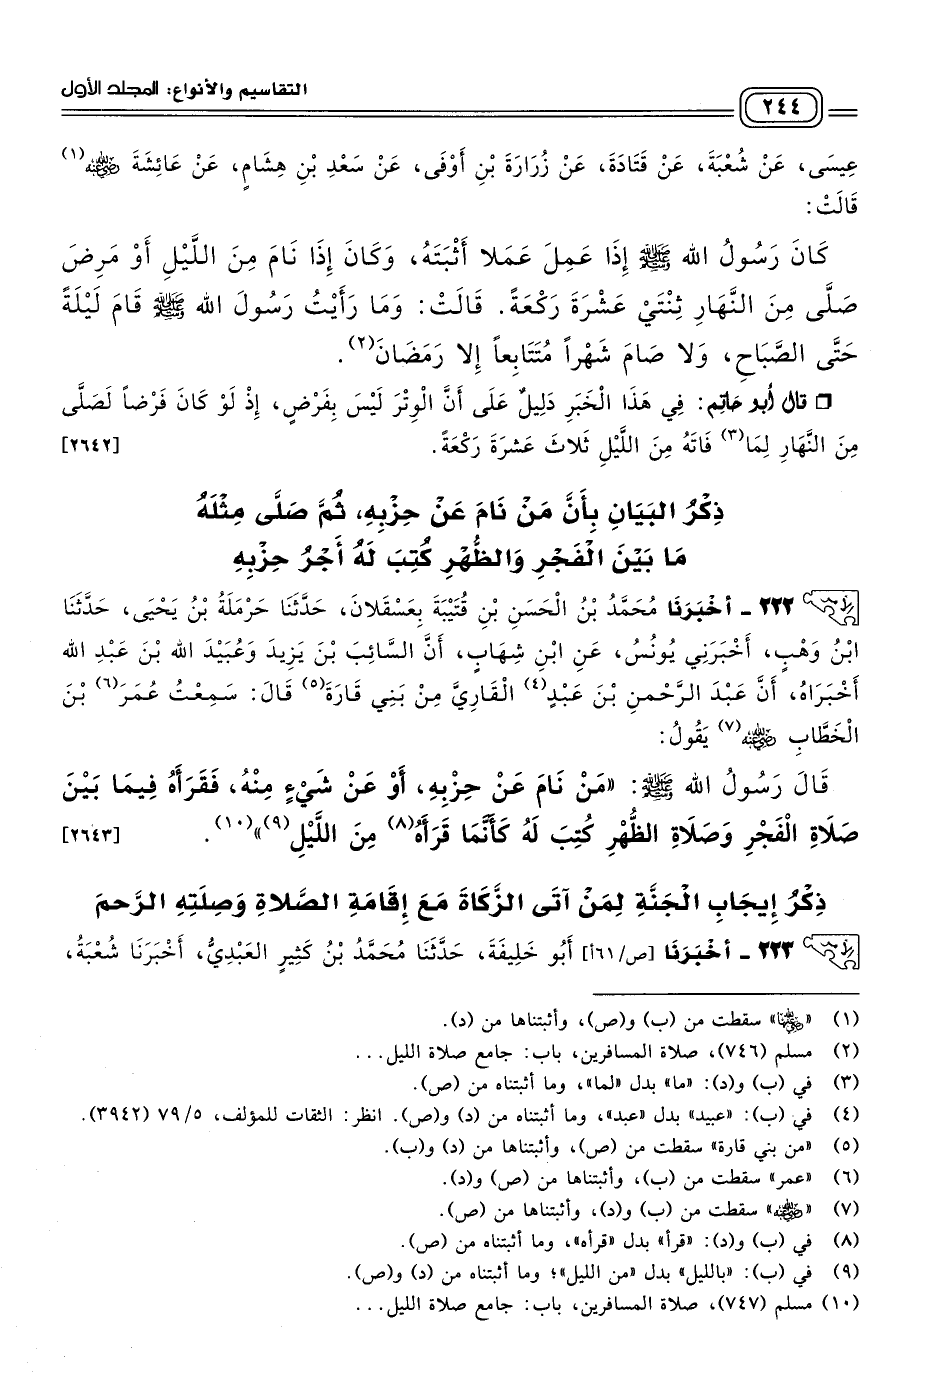 التقاسيم والأنواع: المجلد الأول
٢٤٤
عِيسَى، عَنْ شُعْبَةَ، عَنْ قَتَادَةَ، عَنْ زُرَارَةَ بْنِ أَوْفَى، عَنْ سَعْدِ بْنِ هِشَامٍ، عَنْ عَائِشَةَ ﵂(١)
قَالَتْ:
كَانَ رَسُولُ الله ﷺ إِذَا عَمِلَ عَمَلا أَثْبَتَهُ، وَكَانَ إِذَا نَامَ مِنَ اللَّيْلِ أَوْ مَرِضَ
صَلَّى مِنَ النَّهَارِ ثِنْتَيْ عَشْرَةَ رَكْعَةً. قَالَتْ: وَمَا رَأَيْتُ رَسُولَ الله ﷺ قَامَ لَيْلَةً
حَتَّى الصَّبَاحِ، وَلا صَامَ شَهْراً مُتَتَابِعاً إِلا رَمَضَانَ(٢).
❒ قال أبو حاتم: فِي هَذَا الْخَبَرِ دَلِيلٌ عَلَى أَنَّ الْوِتْرَ لَيْسَ بِفَرْضٍ، إِذْ لَوْ كَانَ فَرْضاً لَصَلَّى
مِنَ النَّهَارِ لِمَا(٣) فَاتَهُ مِنَ اللَّيْلِ ثَلاثَ عَشْرَةَ رَكْعَةً. [٢٦٤٢]
ذِكْرُ البَيَانِ بِأَنَّ مَنْ نَامَ عَنْ حِزْبِهِ، ثُمَّ صَلَّى مِثْلَهُ
مَا بَيْنَ الْفَجْرِ وَالظُّهْرِ كُتِبَ لَهُ أَجْرُ حِزْبِهِ
٢٢٢ - أَخْبَرَنَا مُحَمَّدُ بْنُ الْحَسَنِ بْنِ قُتَيْبَةَ بِعَسْقَلانَ، حَدَّثَنَا حَرْمَلَةُ بْنُ يَحْيَى، حَدَّثَنَا
ابْنُ وَهْبٍ، أَخْبَرَنِي يُونُسُ، عَنِ ابْنِ شِهَابٍ، أَنَّ السَّائِبَ بْنَ يَزِيدَ وَعُبَيْدَ الله بْنَ عَبْدِ الله
أَخْبَرَاهُ، أَنَّ عَبْدَ الرَّحْمنِ بْنَ عَبْدٍ(٤) الْقَارِيَّ مِنْ بَنِي قَارَةَ(٥) قَالَ: سَمِعْتُ عُمَرَ(٦) بْنَ
الْخَطَّابِ ﵁(٧) يَقُولُ:
قَالَ رَسُولُ الله ﷺ: «مَنْ نَامَ عَنْ حِزْبِهِ، أَوْ عَنْ شَيْءٍ مِنْهُ، فَقَرَأَهُ فِيمَا بَيْنَ
صَلَاةِ الْفَجْرِ وَصَلَاةِ الظُّهْرِ كُتِبَ لَهُ كَأَنَّمَا قَرَأَهُ(٨) مِنَ اللَّيْلِ(٩)»(١٠). [٢٦٤٣]
ذِكْرُ إِيجَابِ الْجَنَّةِ لِمَنْ آتَى الزَّكَاةَ مَعَ إِقَامَةِ الصَّلاةِ وَصِلَتِهِ الرَّحِمَ
٢٢٣ - أَخْبَرَنَا [ص/٦١أ] أَبُو خَلِيفَةَ، حَدَّثَنَا مُحَمَّدُ بْنُ كَثِيرٍ العَبْدِيُّ، أَخْبَرَنَا شُعْبَةُ،
(١) «﵂» سقطت من (ب) و(ص)، وأثبتناها من (د).
(٢) مسلم (٧٤٦)، صلاة المسافرين، باب: جامع صلاة الليل...
(٣) في (ب) و(د): «ما» بدل «لما»، وما أثبتناه من (ص).
(٤) في (ب): «عبيد» بدل «عبد»، وما أثبتناه من (د) و(ص). انظر: الثقات للمؤلف، ٥/ ٧٩ (٣٩٤٢).
(٥) «من بني قارة» سقطت من (ص)، وأثبتناها من (د) و(ب).
(٦) «عمر» سقطت من (ب)، وأثبتناها من (ص) و(د).
(٧) «﵁» سقطت من (ب) و(د)، وأثبتناها من (ص).
(٨) في (ب) و(د): «قرأ» بدل «قرأه»، وما أثبتناه من (ص).
(٩) في (ب): «بالليل» بدل «من الليل»؛ وما أثبتناه من (د) و(ص).
(١٠) مسلم (٧٤٧)، صلاة المسافرين، باب: جامع صلاة الليل...